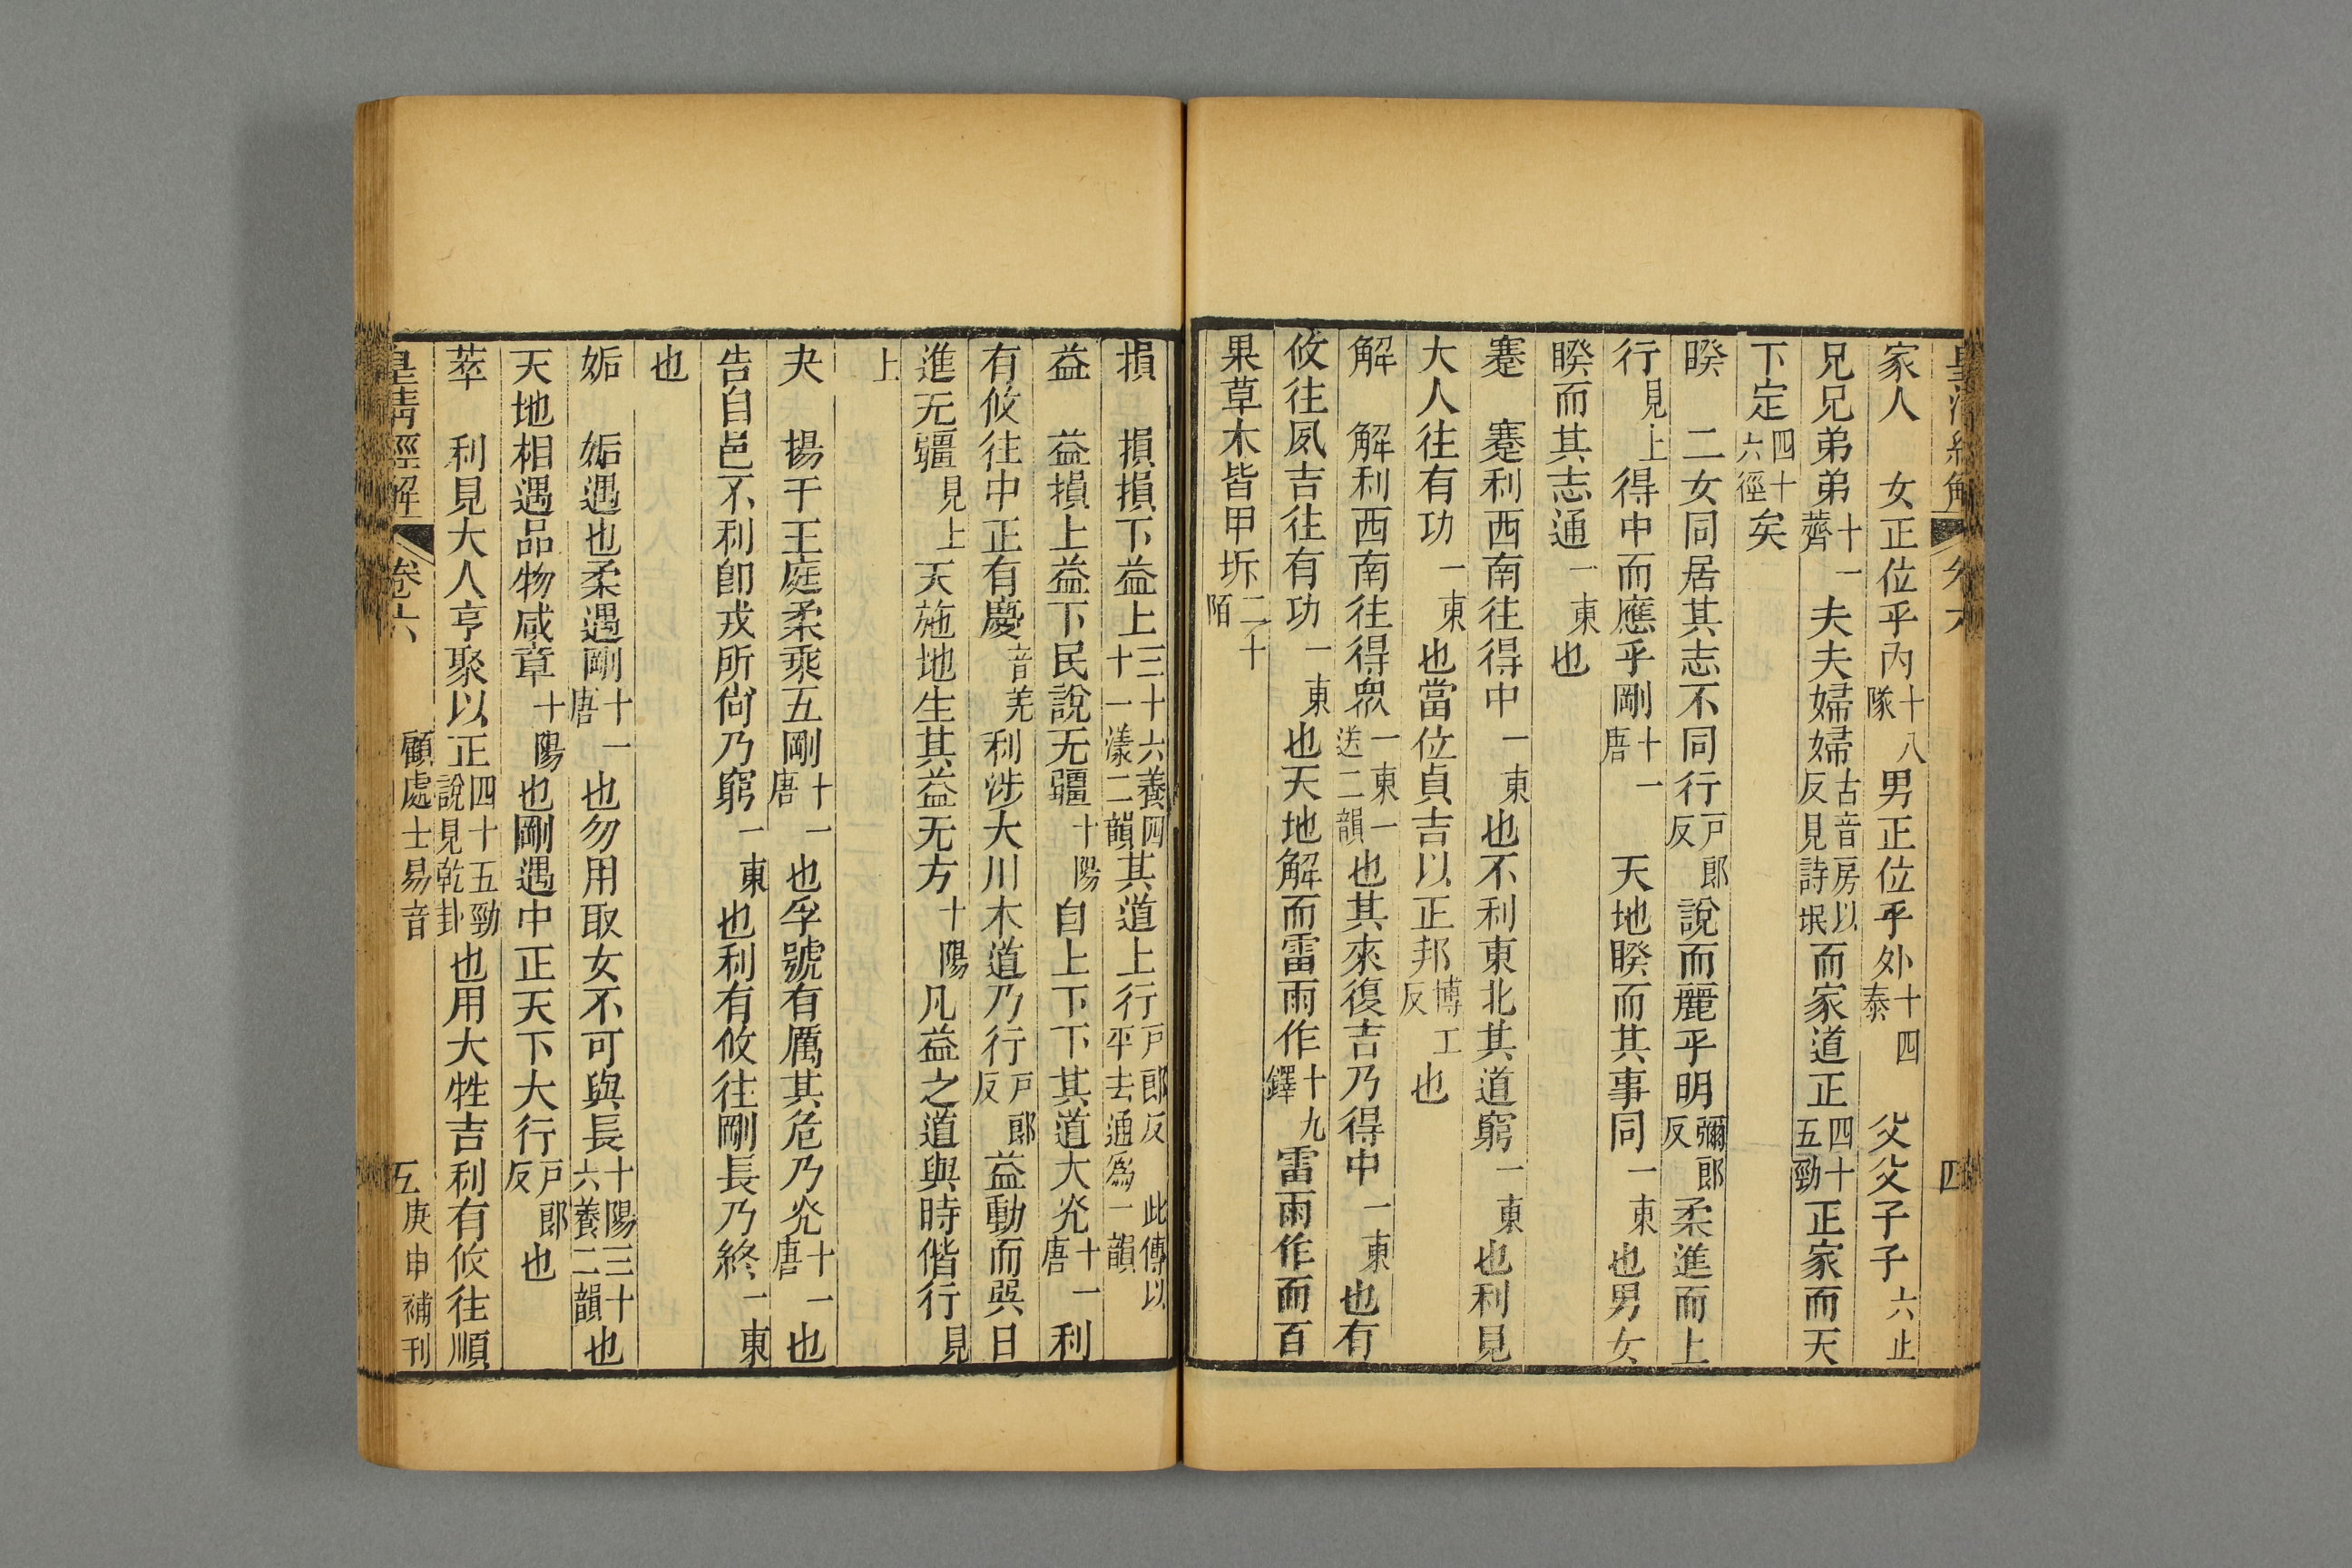 家人　女正位乎內十八隊男正位乎外十四泰　父父子子六止
兄兄弟弟十一薺夫夫婦婦古音房以反見詩氓而家道正四十五勁正家而天
下定四十六徑矣
睽　二女同居其志不同行戸郎反說而麗乎明彌郎反柔進而上
行見上得中而應乎剛十一唐　天地睽而其事同一東也男女
睽而其志通一東也
蹇　蹇利西南往得中一東也不利東北其道窮一東也利見
大人往有功一東也當位貞吉以正邦博工反也
解　解利西南往得衆一東一送二韻也其來復吉乃得中一東也有
攸往夙吉往有功一東也天地解而雷雨作十九鐸雷雨作而百
果草木皆甲坼二十陌
皇清經解　卷六　四
損　損損下益上三十六養四十一漾二韻其道上行戸郎反　此傳以平去通爲一韻
益　益損上益下民說无疆十陽自上下下其道大光十一唐利
有攸往中正有慶音羌利涉大川木道乃行戸郎反益動而巽日
進无疆見上天施地生其益无方十陽凡益之道與時偕行見
上
夬　揚于王庭柔乘五剛十一唐也孚號有厲其危乃光十一唐也
告自邑不利卽戎所尙乃窮一東也利有攸往剛長乃終一東
也
姤　姤遇也柔遇剛十一唐也勿用取女不可與長十陽三十六養二韻也
天地相遇品物咸章十陽也剛遇中正天下大行戸郎反也
萃　利見大人亨聚以正四十五勁說見乾卦也用大牲吉利有攸往順
皇清經解　卷六　顧處士易音　五　庚申補刊